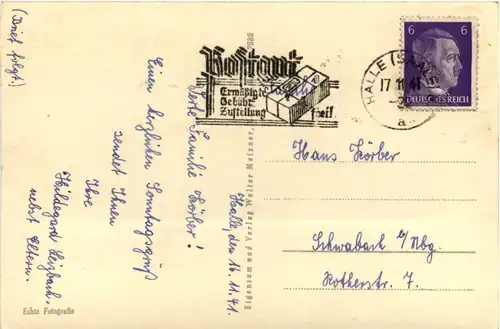 (Brief folgt.)
Halle, den 16.11.41.
Liebe Familie Körber!
Einen herzlichen Sonntagsgruß
sendet Ihnen
Ihre
Hildegard
nebst Eltern.
Echte Fotografie
Eigentum und Verlag Walter Meixner,
Postgut
Ermäßigte
Gebühr
Zustellung frei!
HALLE (SAALE)
17.11.41
a
6 6
DEUTSCHES REICH
Hans Körber
Schwabach b/Nbg.
Rotherstr. 7.